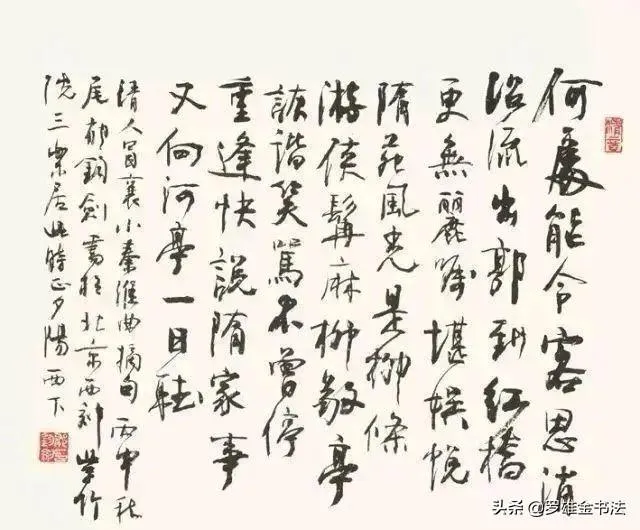 何處能令客思消
沿流出郭到紅橋
更無麗矚堪娛悅
隋苑風光是柳條
游俠髯麻柳敬亭
詼諧笑罵不曾停
重逢快說隋家事
又向河亭一日聽
清人冒襄小秦淮曲摘句 丙申秋
尾 鈞劍書於北京西郊 學竹
院三 居 此時正夕陽西下
头条 @罗雄金书法